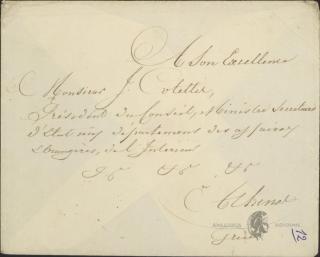 A Son Excellence
Monsieur J. Coletti,
Président du Conseil, et Ministre Secrétaire
d'Etat aux départements des affaires
étrangères, de l'Intérieur
&c &c &c
Athènes
Grèce
12